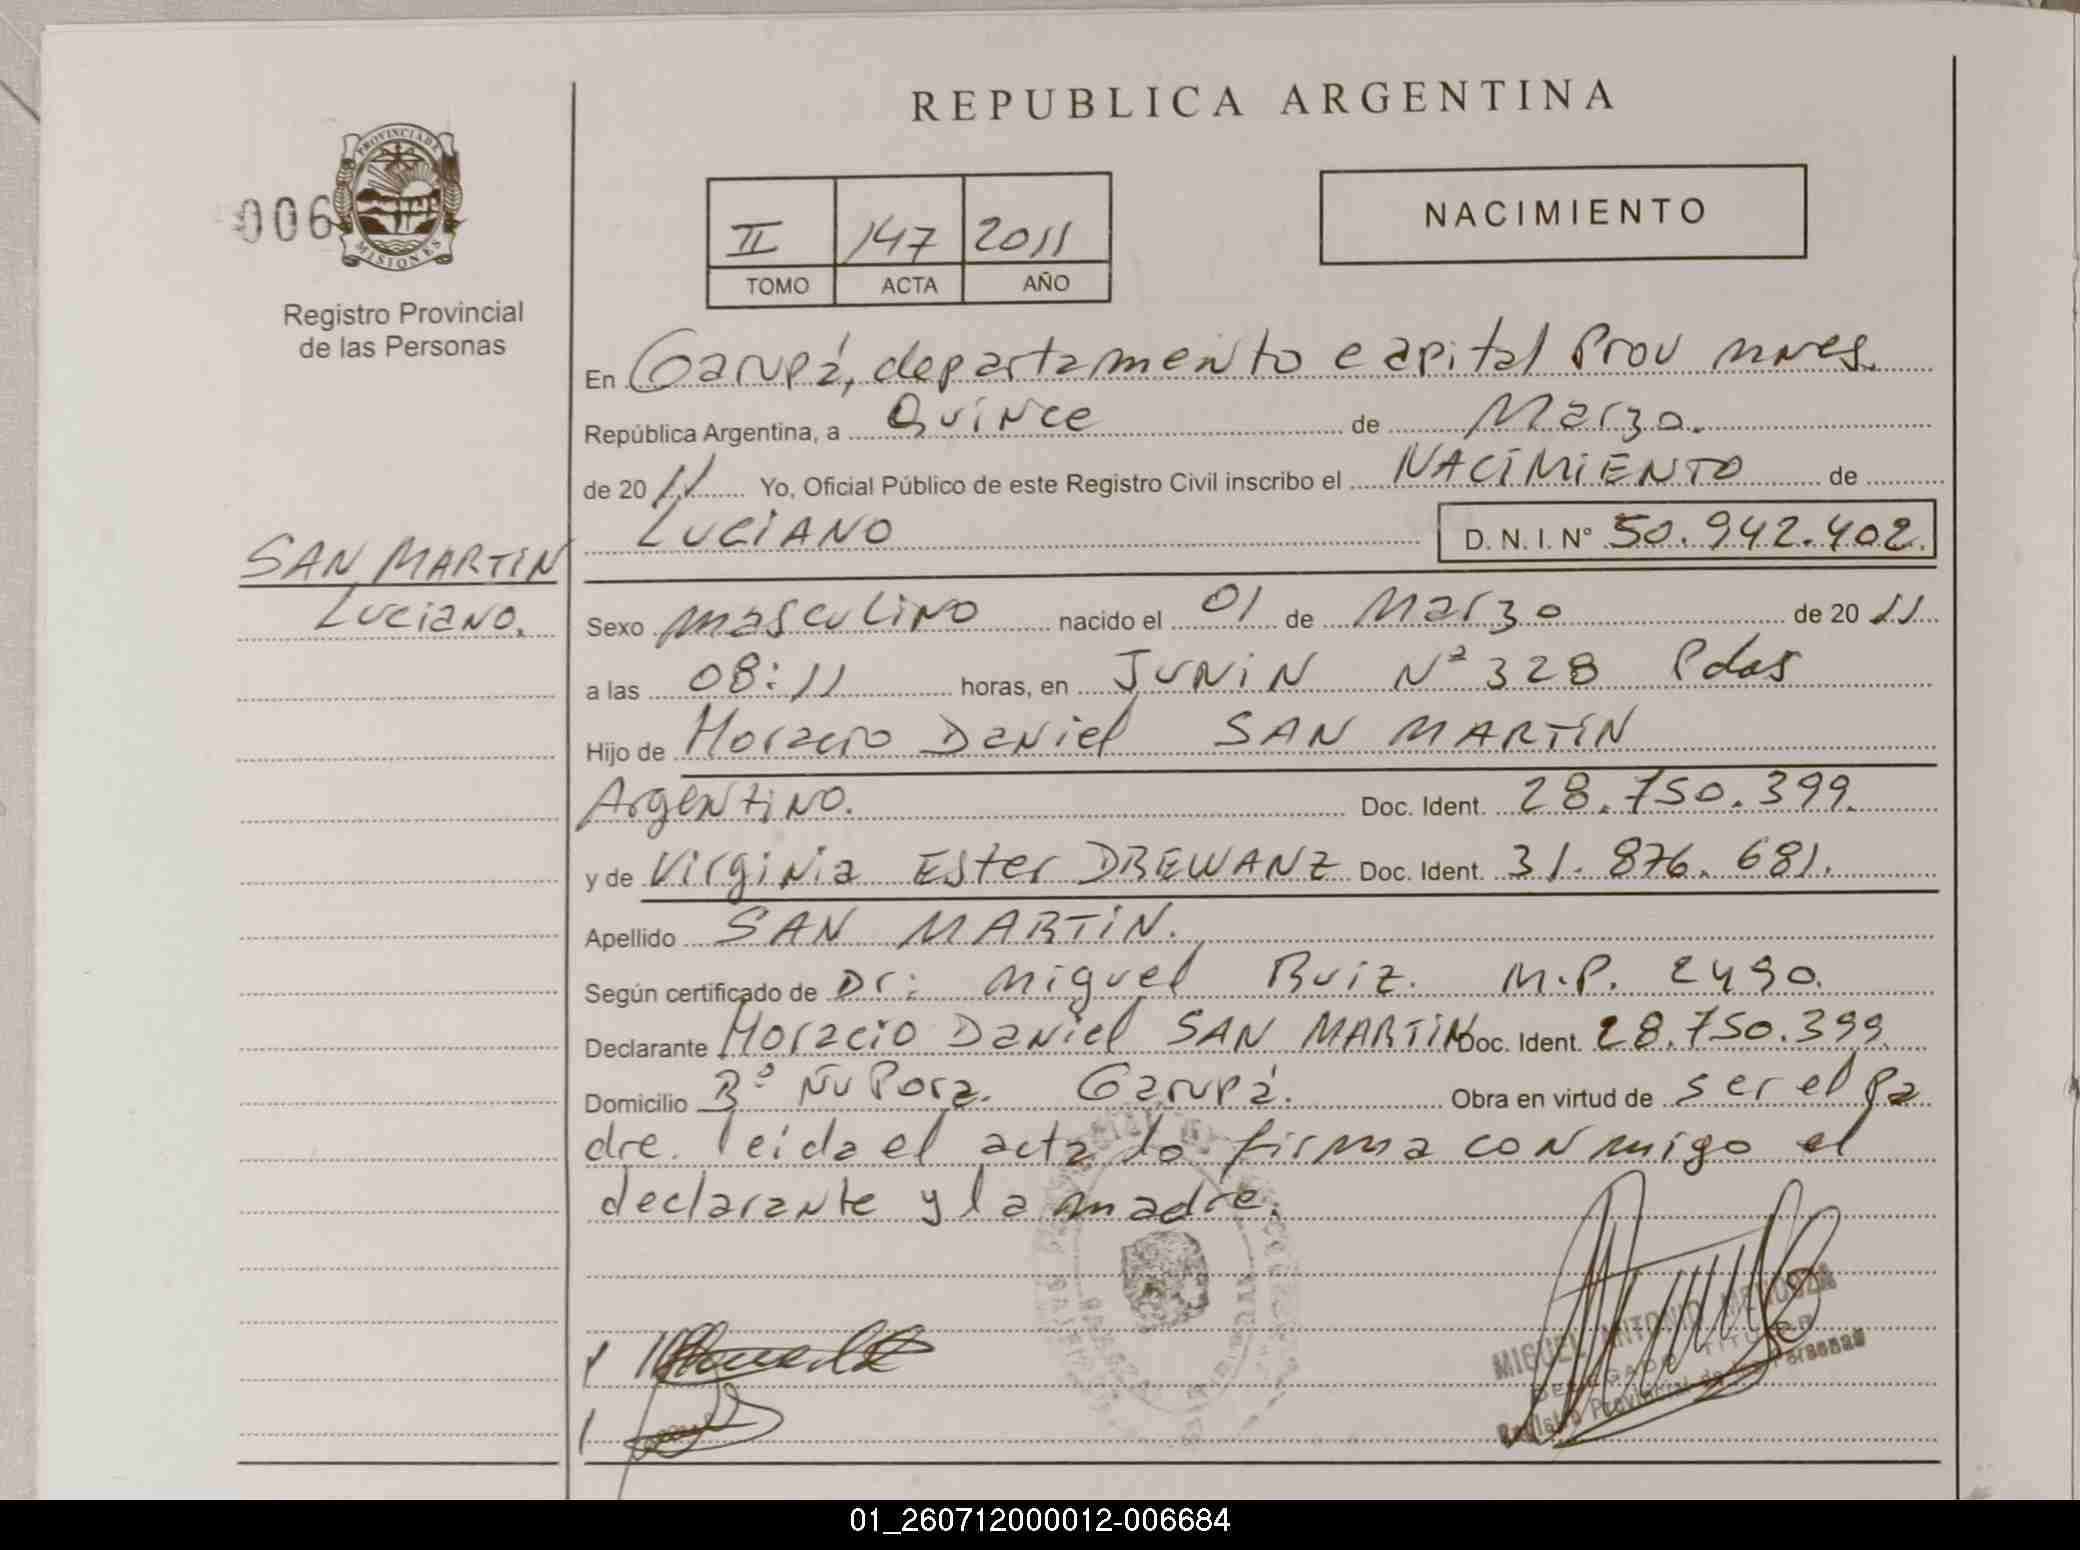 REPUBLICA ARGENTINA
006
PROVINCIA DE
MISIONES
Registro Provincial
de las Personas
II 147 2011
TOMO ACTA AÑO
NACIMIENTO
En Garupá, departamento capital Prov mnes.
República Argentina, a Quince de Marzo.
de 2011 Yo, Oficial Público de este Registro Civil inscribo el NACIMIENTO de
LUCIANO D. N. I. Nº 50.942.402.
SAN MARTIN
Luciano.
Sexo masculino nacido el 01 de Marzo de 2011
a las 08:11 horas, en JUNIN Nº 328 Pdas
Hijo de Horacio Daniel SAN MARTIN
Argentino. Doc. Ident. 28.750.399.
y de Virginia Ester DREWANZ Doc. Ident. 31.876.681.
Apellido SAN MARTIN.
Según certificado de Dr: Miguel Ruiz. M.P. 2490.
Declarante Horacio Daniel SAN MARTIN Doc. Ident. 28.750.399.
Domicilio Bº Ñu Pora. Garupá. Obra en virtud de ser el pa
dre. leida el acta la firma conmigo el
declarante y la madre.
MIGUEL ANTONIO MENDOZA
DELEGADO TITULAR
Registro Provincial de las Personas
01_260712000012-006684